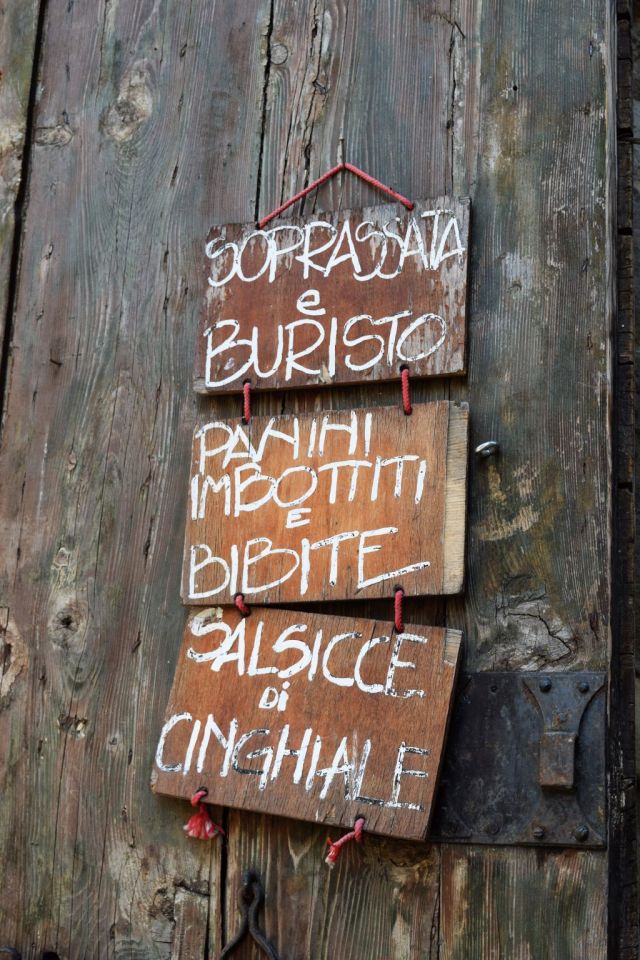 SOPRASSATA
e
BURISTO
PANINI
IMBOTTITI
E
BIBITE
SALSICCE
Di
CINGHIALE